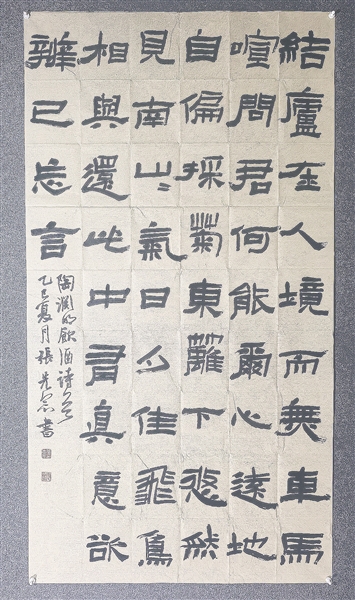 結廬在人境而無車馬
喧問君何能爾心遠地
自偏採菊東籬下悠然
見南山〻氣日夕佳飛鳥
相與還此中有真意欲
辨已忘言
陶淵明飲酒詩
乙巳夏月張書